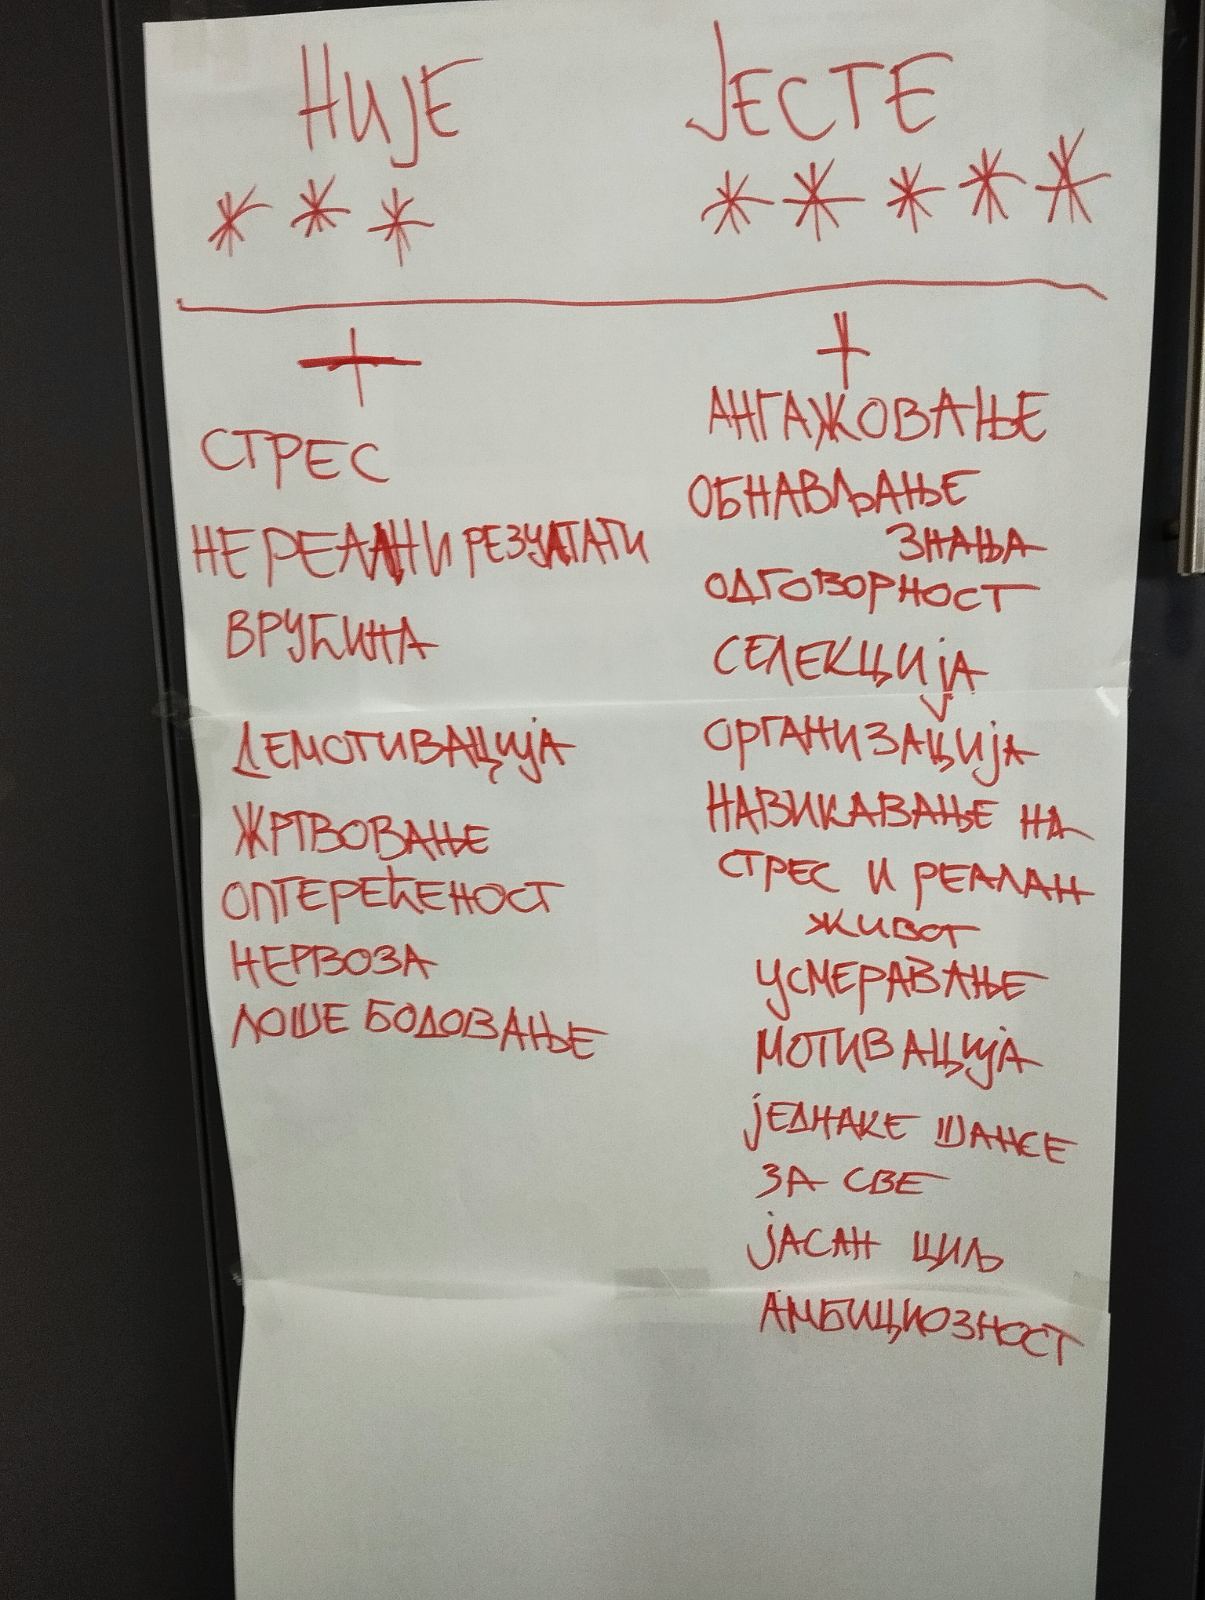 НИЈЕ
* * *
+
СТРЕС
НЕРЕАЛНИ РЕЗУЛТАТИ
ВРУЋИНА
ДЕМОТИВАЦИЈА
ЖРТВОВАЊЕ
ОПТЕРЕЋЕНОСТ
НЕРВОЗА
ЛОШЕ БОДОВАЊЕ
ЈЕСТЕ
* * * * *
+
АНГАЖОВАЊЕ
ОБНАВЉАЊЕ
ЗНАЊА
ОДГОВОРНОСТ
СЕЛЕКЦИЈА
ОРГАНИЗАЦИЈА
НАВИКАВАЊЕ НА
СТРЕС И РЕАЛАН
ЖИВОТ
УСМЕРАВАЊЕ
МОТИВАЦИЈА
ЈЕДНАКЕ ШАНСЕ
ЗА СВЕ
ЈАСАН ЦИЉ
АМБИЦИОЗНОСТ